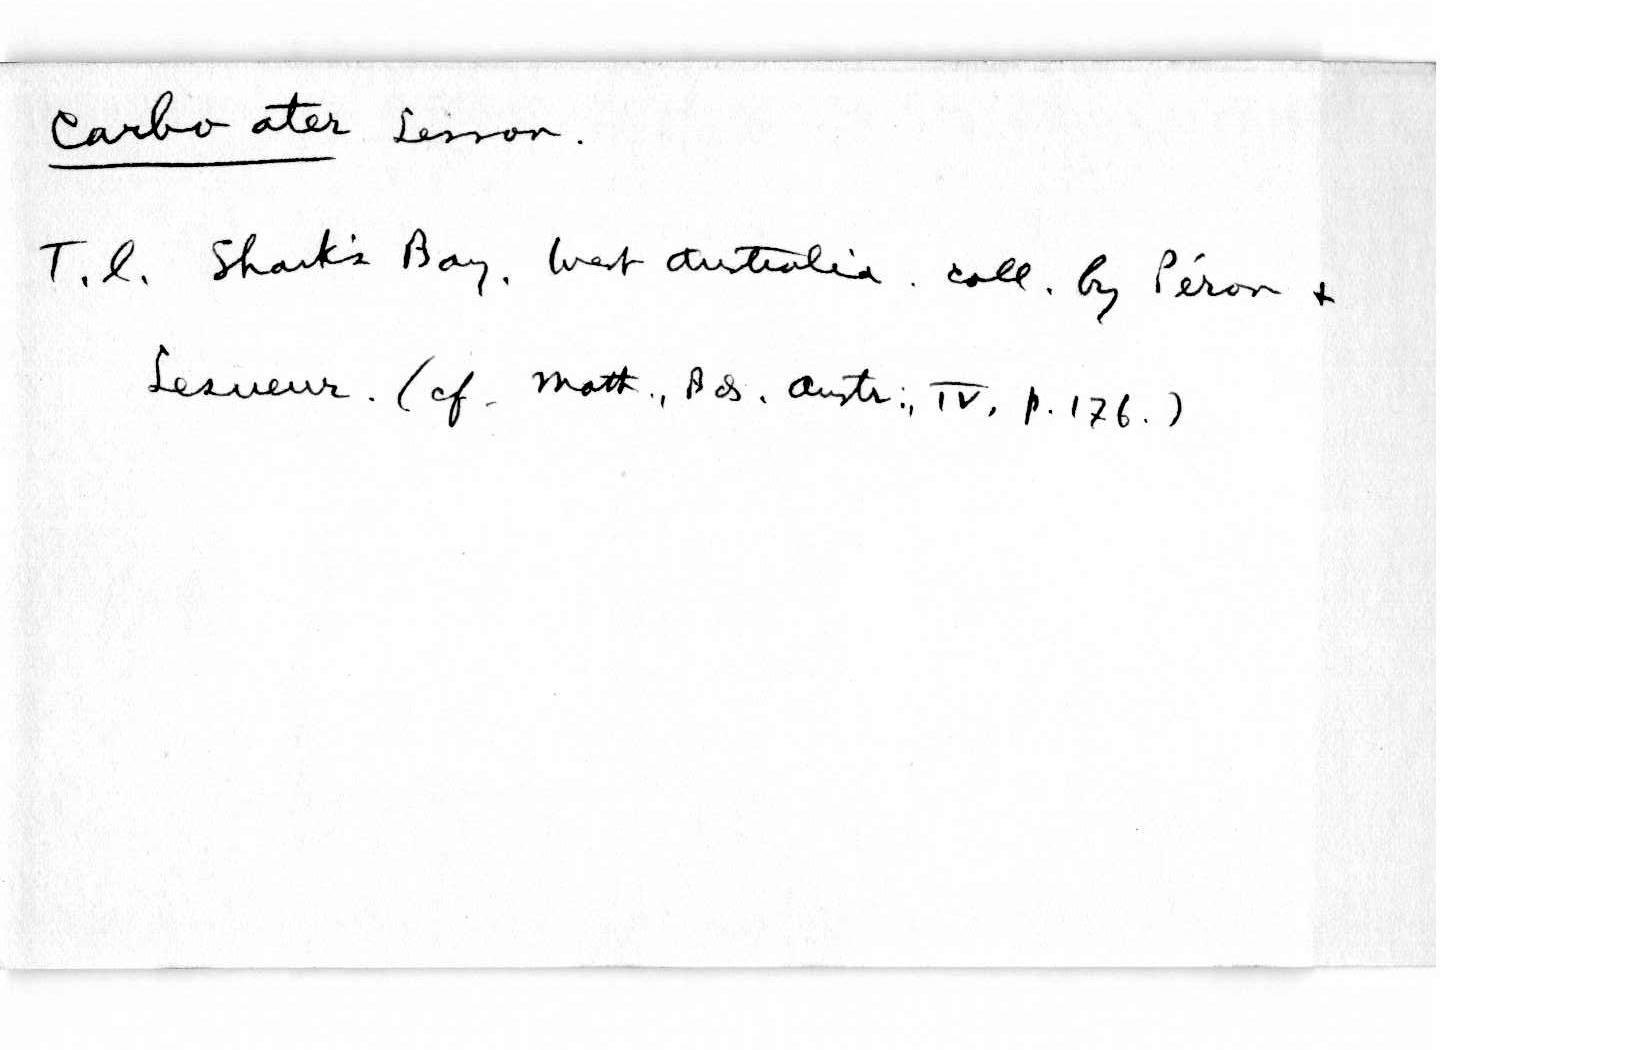 Carbo ater Lesson.
T.l. Shark's Bay, West Australia. coll. by Péron &
Lesueur. (cf. Math., Bds. Austr., IV, p. 176.)